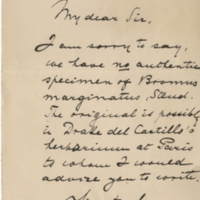 My dear Sir,
I am sorry to say,
we have no authentic
specimen of Bromus
marginatus, Steud.
The original is possibly
in Drake del Castillo's
herbarium at Paris
to whom I would
advise you to write.